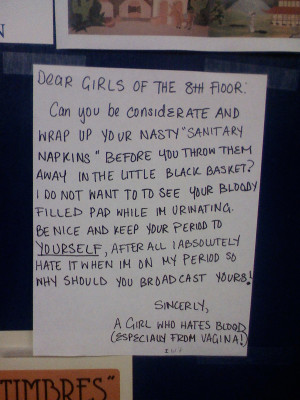 N
DEAR GIRLS OF THE 8TH FLOOR:
Can you be considerate AND
WRAP UP YOUR NASTY "SANITARY
NAPKINS" BEFORE YOU THROW THEM
AWAY IN THE LITTLE BLACK BASKET?
I DO NOT WANT TO TO SEE YOUR BLOODY
FILLED PAD WHILE IM URINATING.
BE NICE AND KEEP YOUR PERIOD TO
YOURSELF, AFTER ALL I ABSOLUTELY
HATE IT WHEN IM ON MY PERIOD SO
WHY SHOULD YOU BROADCAST YOURS!
SINCERLY,
A GIRL WHO HATES BLOOD
(ESPECIALLY FROM VAGINA!)
TIMBRES"